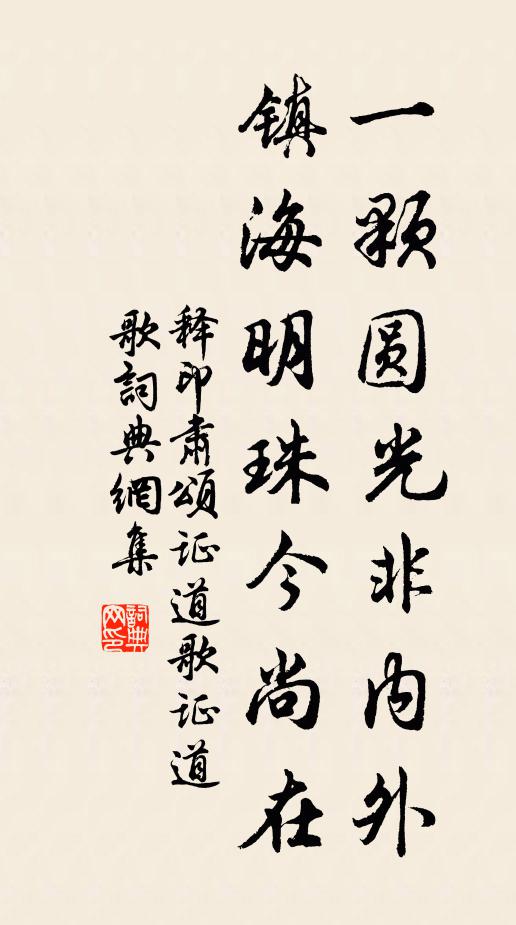 一颗圆光非内外
镇海明珠今尚在
释印肃颂证道歌证道
歌詞典網集
詞典网印